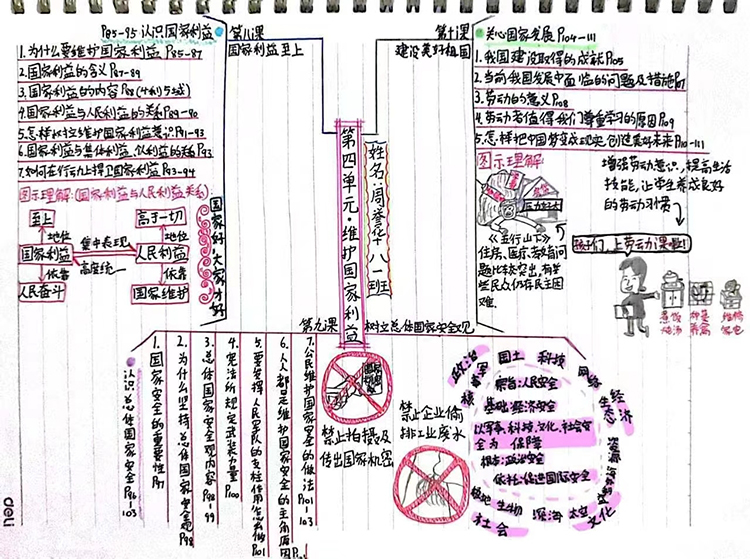 P85-95 认识国家利益
第八课
国家利益至上
1.为什么要维护国家利益 P85-87
2.国家利益的含义 P87-89
3.国家利益的内容 P88
4.国家利益与人民利益的关系 P89-90
5.怎样树立维护国家利益意识 P91-93
6.国家利益与集体利益、个人利益的关系 P93
7.如何在行动上捍卫国家利益 P93-94
图示理解:(国家利益与人民利益关系)
至上
高于一切
地位
地位
国家利益
集中表现
人民利益
高度统一
依靠
依靠
人民奋斗
国家维护
国家好,大家才好
第四单元·维护国家利益
姓名:周誉花 八一班
第十课
建设美好祖国
关心国家发展 P104-111
1.我国建设取得的成就 P105
2.当前我国发展中面临的问题及措施 P107
3.劳动的意义 P108
4.劳动者值得我们尊重学习的原因 P109
5.怎样把中国梦变成现实,创造美好未来 P110-111
图示理解:
《五行山下》
住房、医疗、教育等问
题比较突出,有些
民众仍存在民生困
难.
增强劳动意识,提高生活
技能,让学生养成良好
的劳动习惯
孩子们,上劳动课啦!
煮饭
炖汤
种菜
养禽
维修
家电
第九课
树立总体国家安全观
认识总体国家安全 P96-103
1.国家安全的重要性 P97
2.为什么坚持总体国家安全观 P98
3.总体国家安全观内容 P98-99
4.宪法所规定武装力量 P100
5.要发挥人民军队的支柱作用怎么做 P101
6.人人都是维护国家安全的主角原因
7.公民维护国家安全的做法 P101-103
禁止拍摄及
传出国家机密
禁止企业偷
排工业废水
政治
军事
国土
科技
网络
经济
生态
文化
社会
生物
深海
太空
极地
宗旨:人民安全
基础:经济安全
以军事,科技,文化,社会安
全为 保障
根本:政治安全
依托:促进国际安全
deli